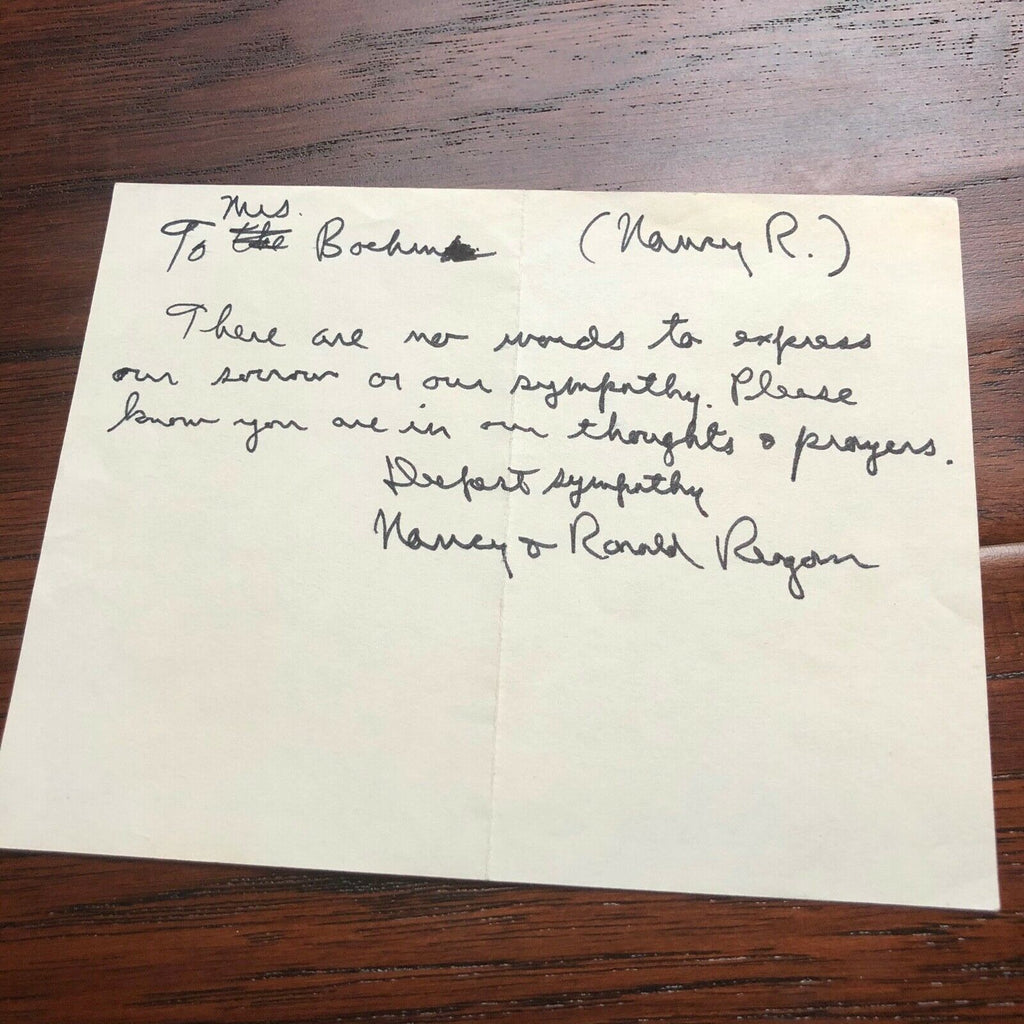 Mrs.
To the Boehm (Nancy R.)
There are no words to express
our sorrow or our sympathy. Please
know you are in our thoughts & prayers.
Deepest sympathy
Nancy & Ronald Reagan